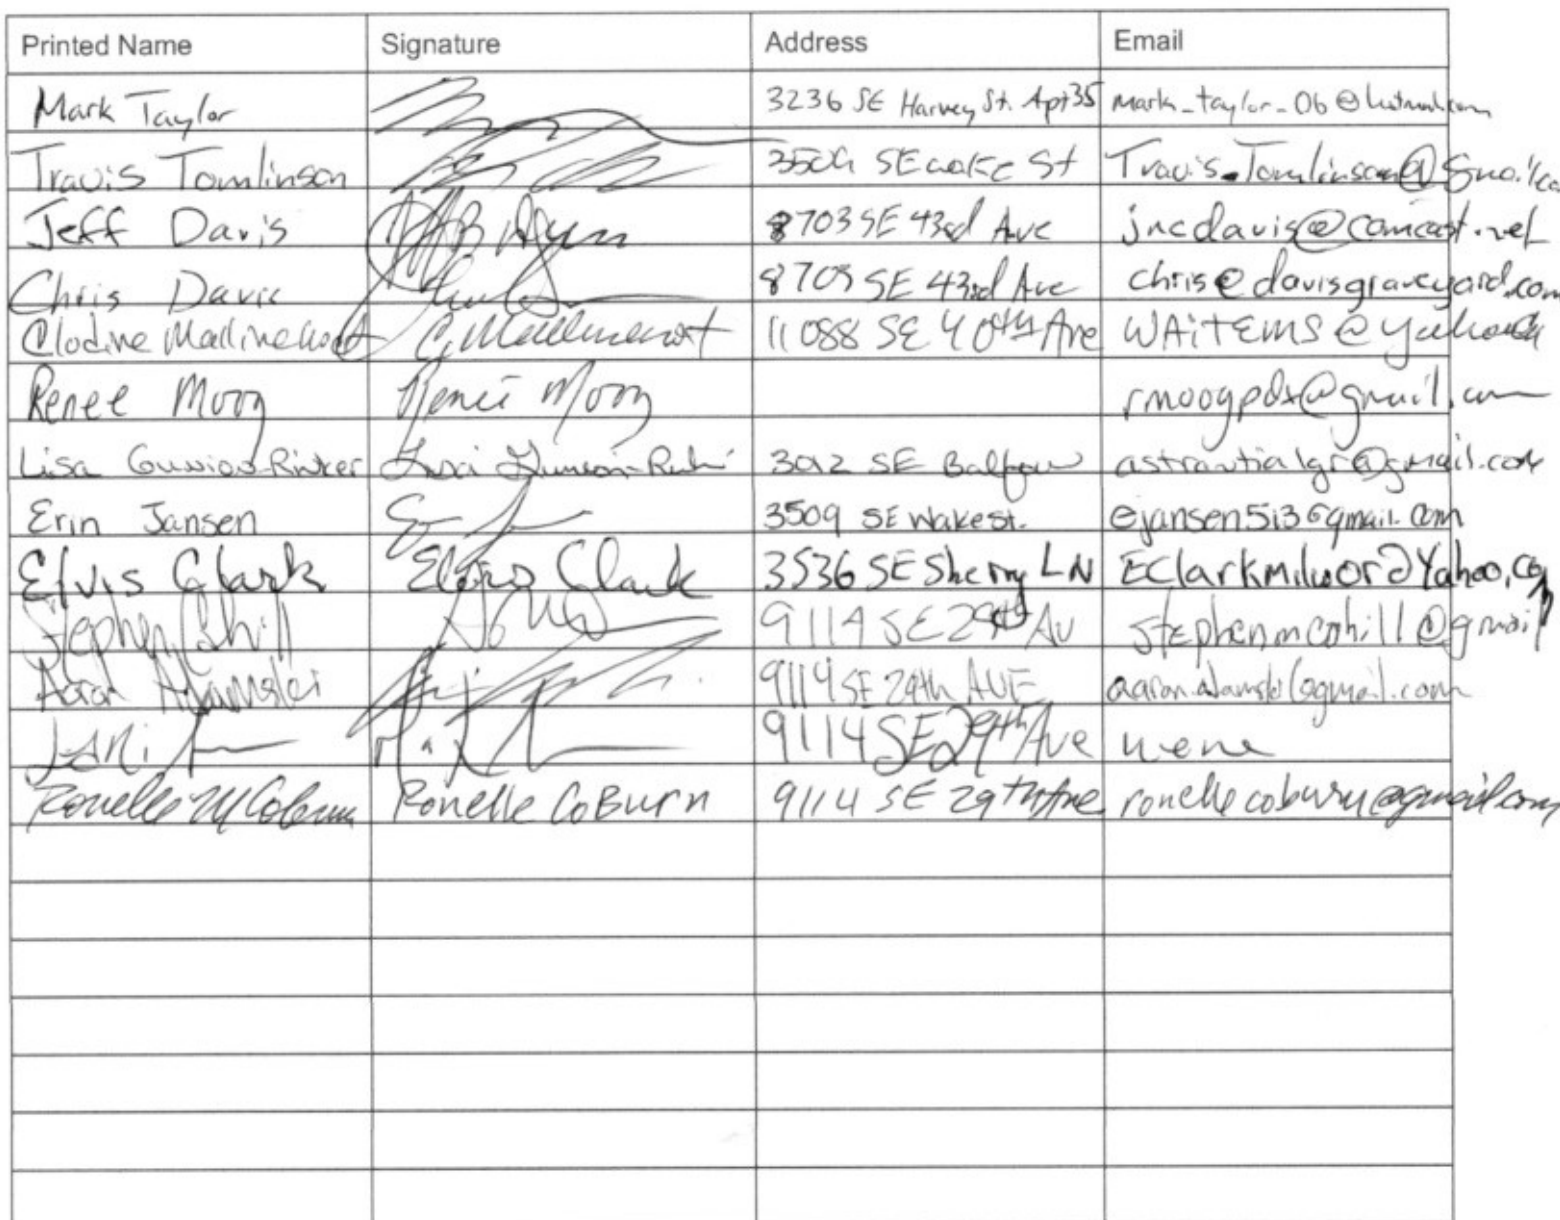 Printed Name Signature Address Email
Mark Taylor 3236 SE Harvey St. Apt 35 mark_taylor_06@hotmail.com
Travis Tomlinson 3509 SE wake St Travis.Tomlinson@gmail.co
Jeff Davis 8703 SE 43rd Ave jncdavis@comcast.net
Chris Davis 8703 SE 43rd Ave chris@davisgraveyard.com
11088 SE 40th Ave WAiTEMS@yahoo
Renee Moog Renee Moog rmoogpdx@gmail.com
Lisa Gunion-Rinker Lisa Gunion-Rinker 3012 SE Balfour astrantialgr@gmail.com
Erin Jansen 3509 SE Wake St. ejansen513@gmail.com
Elvis Clark Elvis Clark 3536 SE Sherry LN EClarkmilwor@Yahoo.co
Stephen Cohill 9114 SE 29th Av stephenmcohill@gmail
9114 SE 29th AVE aaron.adamski@gmail.com
9114 SE 29th Ave
Ronelle M Coburn Ronelle CoBurn 9114 SE 29th Ave ronellecoburn@gmail.com